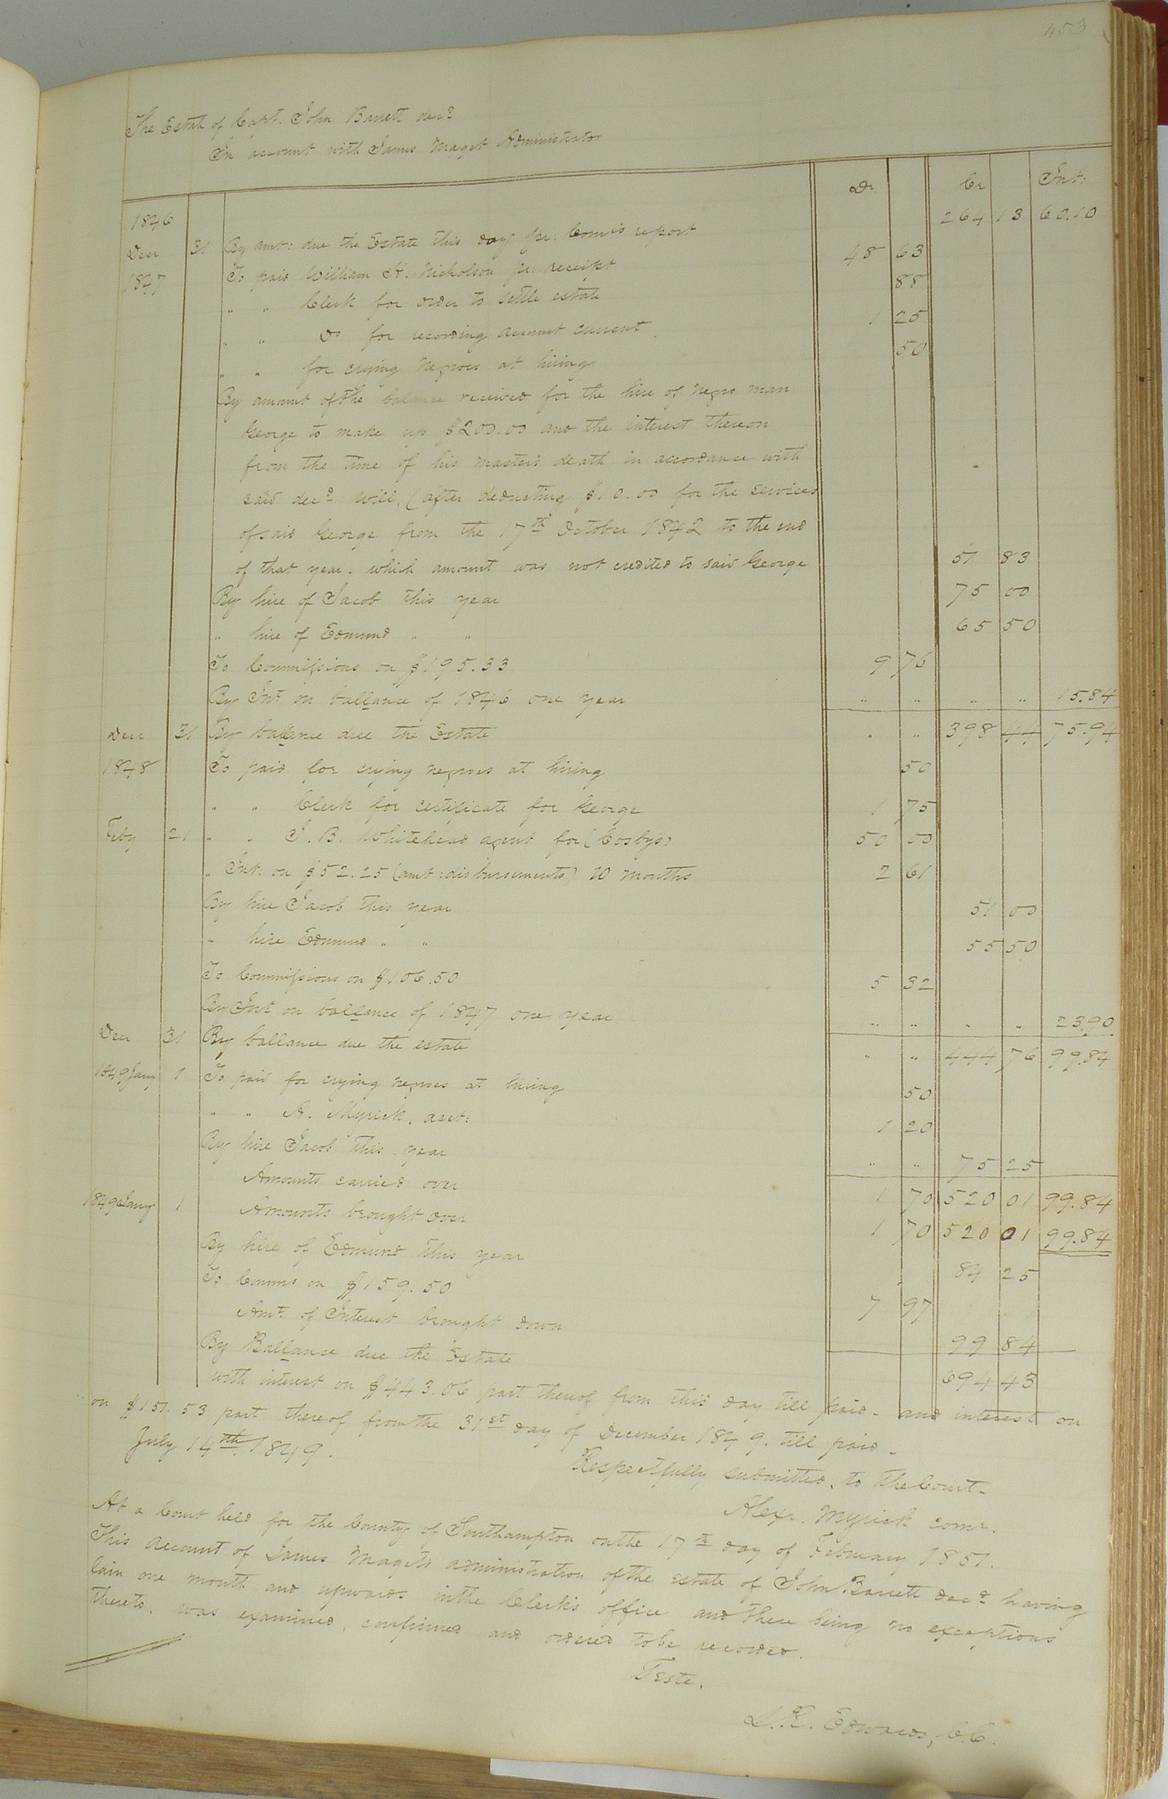 453
The Estate of Capt. John Barrett decd
In account with James Maget Administrator
Dr Cr Int:
1846
Decr 31 By amt: due the Estate this day pr: Com's report 264 13 60.10
1847 To paid William H. Nicholson pr: receipt 48 63
" " Clerk for order to settle estate 88
" " Do for recording account current 1 25
" " for crying Negroes at hiring 50
By amount of the balance received for the hire of negro man
George to make up $200.00 and the interest thereon
from the time of his masters death in accordance with
said decd will, (after deducting $10.00 for the services
of said George from the 17th October 1842 to the end
of that year. which amount was not credited to said George 51 83
By hire of Jacob this year 75 00
" hire of Edmund " " 65 50
To Commissions on $195.33 9 76
By Int on ballance of 1846 one year " " " " 15.84
Decr 31 By ballance due the Estate " " 398 44 75.94
1848 To paid for crying negroes at hiring 50
" " Clerk for certificate for George 1 75
Feby 21 " " J. B. Whitehead agent for (Cosbys) 50 00
" Int. on $52.25 (amt: disbursements) 10 months 2 61
By hire Jacob this year 51 00
" hire Edmund " " 55 50
To Commissions on $106.50 5 32
By Int on ballance of 1847 one year " " " " 23.90
Decr 31 By ballance due the estate " " 444 76 99.84
1849 Jany 1 To paid for crying negroes at hiring 50
" " A. Myrick. acct: 1 20
By hire Jacob this year " " 75 25
Amounts carried over 1 70 520 01 99.84
1849 Jany 1 Amounts brought over 1 70 520 01 99.84
By hire of Edmund this year 84 25
To Comms on $159.50 7 97
Amt. of Interest brought down 99 84
By Ballance due the Estate 694 43
with interest on $443.06 part thereof from this day till paid - and interest on
on $151.53 part thereof from the 31st day of December 1849. till paid -
July 14th 1849. Respectfully submitted, to the Court -
Alexr. Myrick comr.
At a Court held for the County of Southampton on the 17th day of February 1851.
This Account of James Magets administration of the estate of John Barrett decd having
lain one month and upwards in the Clerk's office and there being no exceptions
thereto. was examined, confirmed and ordered to be recorded.
Teste.
L. R. Edwards, C.C.